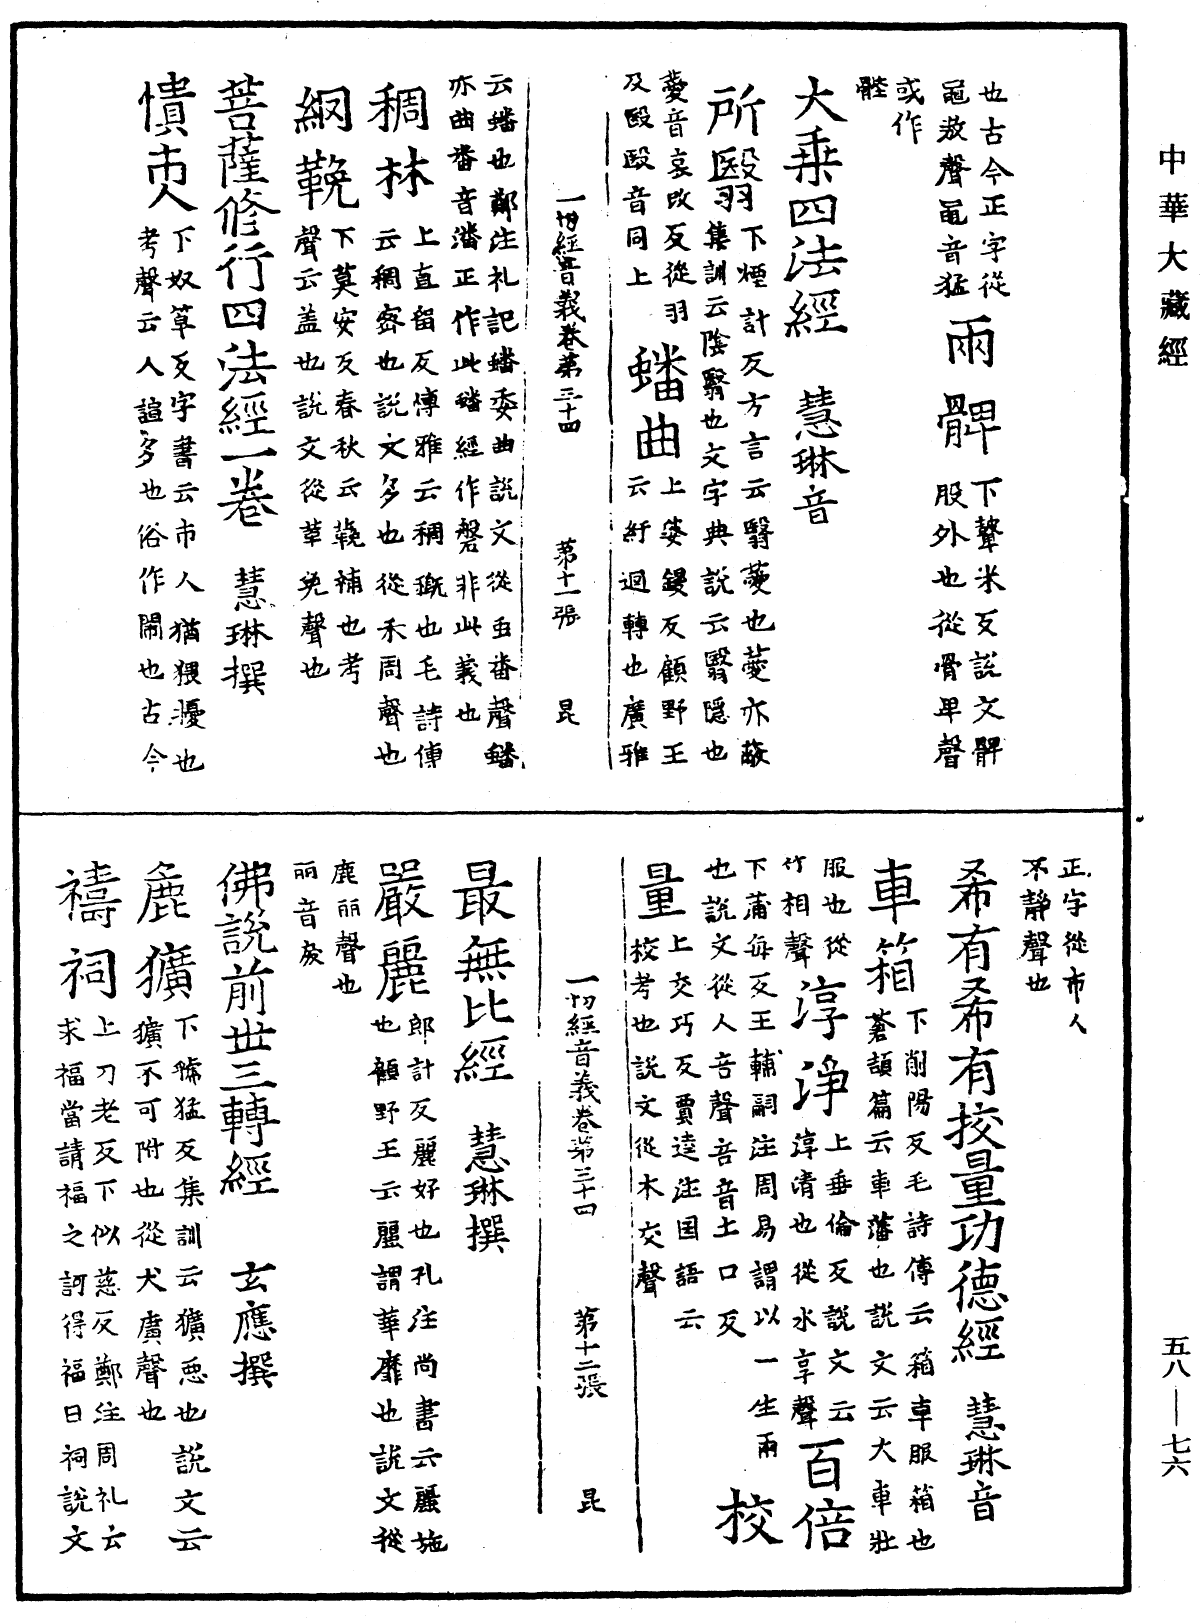 中華大藏經
也古今正字從
黽敖聲黽音猛
兩髀
下鞞米反說文髀
股外也從骨卑聲
或作
䏶
大乗四法經 慧琳音
所翳
下煙計反方言云翳薆也薆亦蔽
集訓云陰翳也文字典說云翳隱也
薆音哀改反從羽
及殹殹音同上
蟠曲
上婆鏝反顧野王
云紆迴轉也廣雅
一切經音義卷第三十四 第十一張 昆
云蟠也鄭注礼記蟠委曲說文從虫番聲蟠
亦曲番音潘正作此蟠經作磐非此義也
稠林
上直留反傳雅云稠穊也毛詩傳
云稠宻也說文多也從禾周聲也
網鞔
下莫安反春秋云鞔補也考
聲云盖也說文從革免聲也
菩薩修行四法經一卷 慧琳撰
憒𠆴
下奴草反字書云市人猶猥擾也
考聲云人諠多也俗作閙也古今
正字從市人
不静聲也
希有希有挍量功德經 慧琳音
車箱
下削陽反毛詩傳云箱車服箱也
蒼頡篇云車藩也說文云大車壯
服也從
竹相聲
淳淨
上垂倫反說文云
淳清也從水享聲
百倍
下蒲每反王輔嗣注周易謂以一生兩
也說文從人咅聲咅音土口反
挍量
上交巧反賈逵注国語云
挍考也說文從木交聲
一切經音義卷第三十四 第十二張 昆
最無比經 慧琳撰
嚴麗
郎計反麗好也孔注尚書云麗施
也顧野王云麗謂華靡也說文從
鹿丽聲也
丽音戾
佛說前丗三轉經 玄應撰
麁獷
下虢猛反集訓云獷惡也說文云
獷不可附也從犬廣聲也
禱祠
上刀老反下似慈反鄭注周礼云
求福當請福之詞得福日祠說文
五八—七六